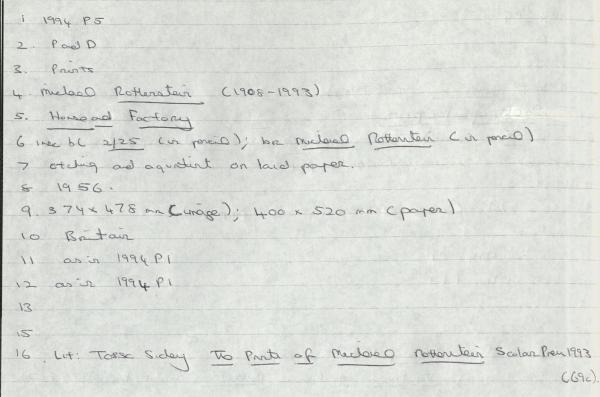 1 1994 P5
2. P and D
3. Prints
4. Michael Rothenstein (1908-1993)
5. Homead Factory
6 insc bl 2/25 (in pencil); br Michael Rothenstein (in pencil)
7 etching and aquatint on laid paper.
8 1956.
9. 374 x 478 mm (image); 400 x 520 mm (paper)
10 Britain
11 as in 1994 P1
12 as in 1994 P1
13
15
16. Lit: Tessa Sidey The Prints of Michael Rothenstein Scolar Press 1993
(69c).